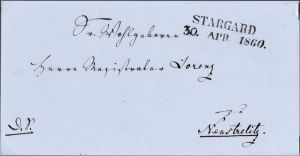 STARGARD
30. APR. 1860.
Sr. Wohlgeboren
Herrn Registrator Lorenz
zu
Neustrelitz.
D. S.